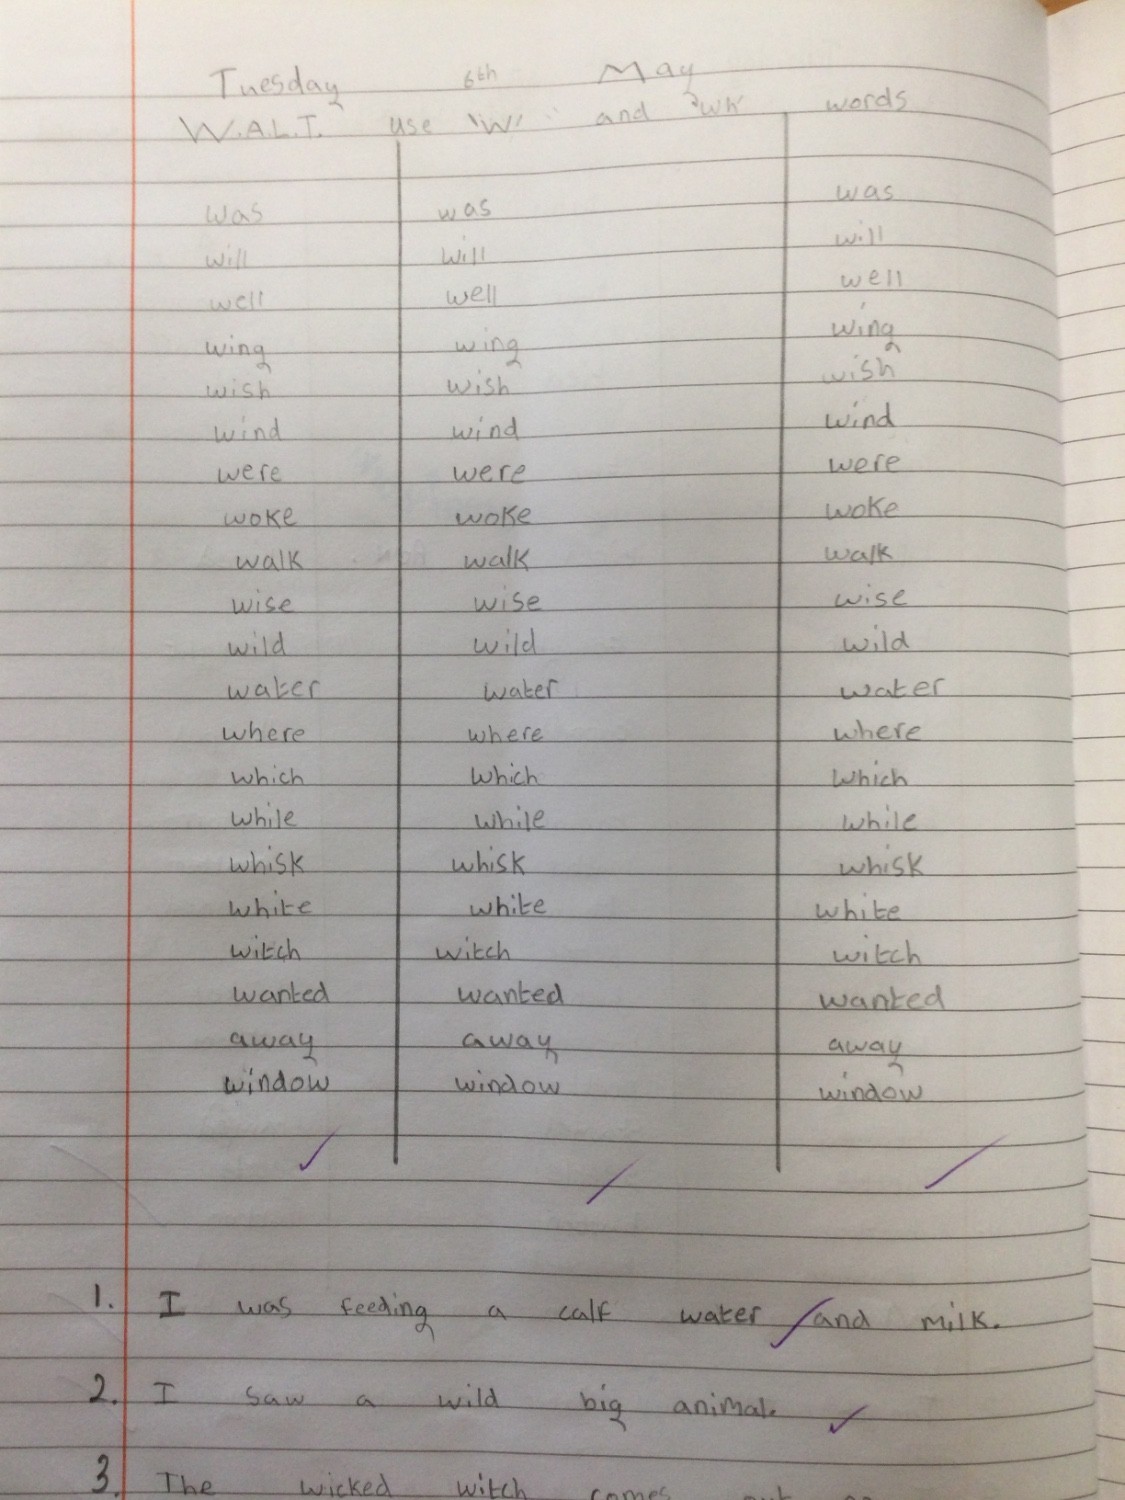 Tuesday 6th May
W.A.L.T. use 'W' and 'Wh' words
was was was
will will will
well well well
wing wing wing
wish wish wish
wind wind wind
were were were
woke woke woke
walk walk walk
wise wise wise
wild wild wild
water water water
where where where
which which which
while while while
whisk whisk whisk
white white white
witch witch witch
wanted wanted wanted
away away away
window window window
1. I was feeding a calf water and milk.
2. I saw a wild big animal.
3. The wicked witch comes out